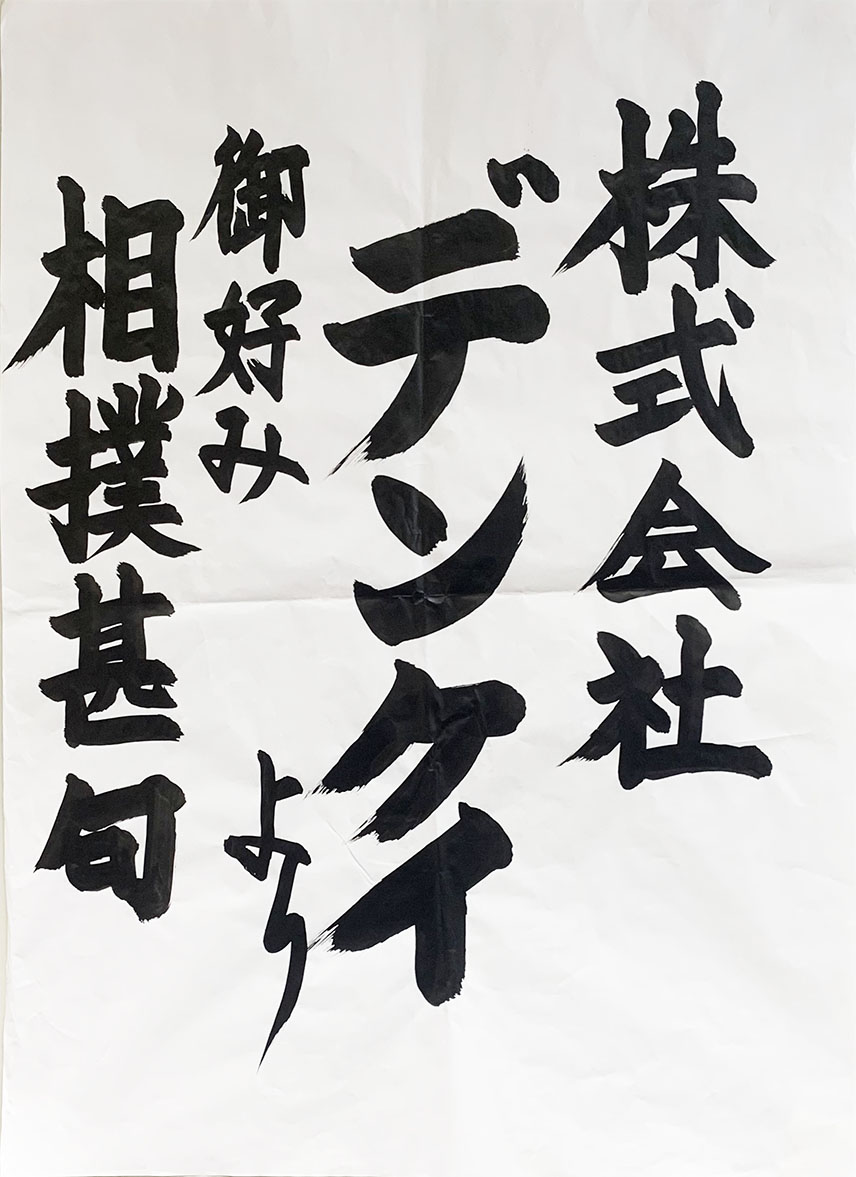 株式会社
デンケイ
御好み
より
相撲甚句